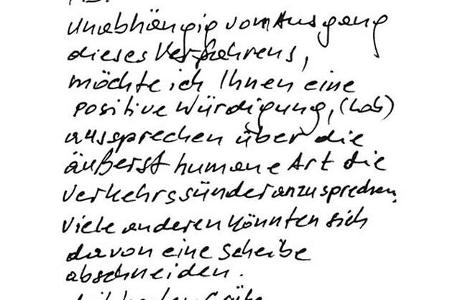 P.S.
Unabhängig vom Ausgang
dieses Verfahrens,
möchte ich Ihnen eine
positive Würdigung, (Lob)
aussprechen über die
äußerst humane Art die
Verkehrssünder anzusprechen,
viele anderen könnten sich
davon eine Scheibe
abschneiden.